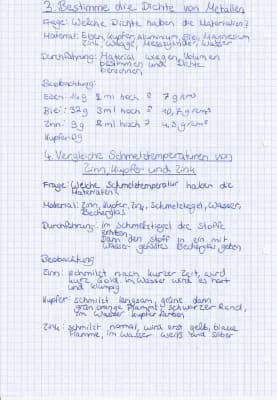 3. Bestimme die Dichte von Metallen
Frage: Welche Dichte haben die Materialien?
Material: Eisen, Kupfer, Aluminium, Blei, Magnesium
Zink, Waage, Messzylinder, Wasser
Durchführung: Material wiegen, Volumen
bestimmen und Dichte
berechnen
Beobachtung:
Eisen: 14g 2 ml hoch 7 g/cm³
Blei: 32g 3 ml hoch 10,7 g/cm³
Zinn: 9g 2 ml hoch 4,5 g/cm³
Kupfer:
4. Vergleiche Schmelztemperaturen von
Zinn, Kupfer und Zink
Frage: Welche Schmelztemperatur haben die
Materialien?
Material: Zinn, Kupfer, Zink, Schmelztiegel, Wasser,
Becherglas
Durchführung: im Schmelztiegel die Stoffe
Dann den Stoff in ein mit
Wasser gefülltes Becherglas geben
Beobachtung
Zinn: schmilzt nach kurzer Zeit, wird
kurz Gold, im Wasser wird es hart
und klumpig
Kupfer: schmilzt langsam, grüne dann
grün orange Flamme, schwarzer Rand,
im Wasser kupferfarben
Zink: schmilzt normal, wird erst gelb, blaue
Flamme, im Wasser weiß und silber